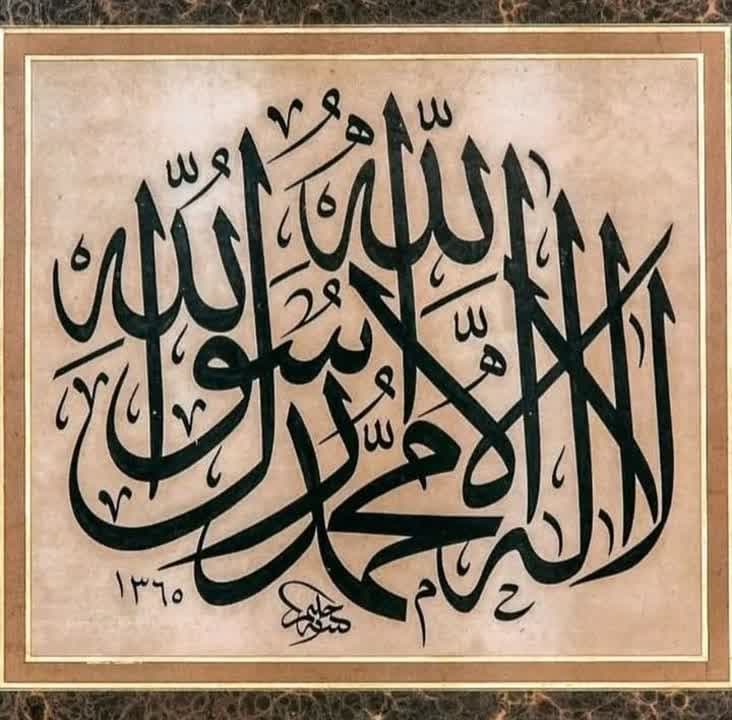 لا إله إلا الله محمد رسول الله
١٣٦٥
حليم